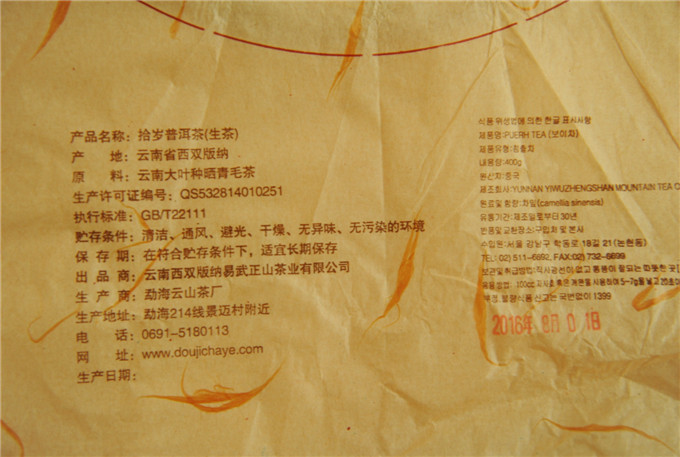 产品名称：拾岁普洱茶(生茶)
产 地：云南省西双版纳
原 料：云南大叶种晒青毛茶
生产许可证编号：QS532814010251
执行标准：GB/T22111
贮存条件：清洁、通风、避光、干燥、无异味、无污染的环境
保 存 期：在符合贮存条件下，适宜长期保存
出 品 商：云南西双版纳易武正山茶业有限公司
生 产 商：勐海云山茶厂
生产地址：勐海214线景迈村附近
电 话：0691-5180113
网 址：www.doujichaye.com
生产日期：
식품 위생법에 의한 한글 표시사항
제품명:PUERH TEA (보이차)
제품유형:침출차
내용량:400g
원산지:중국
제조회사:YUNNAN YIWUZHENGSHAN MOUNTAIN TEA
원료 및 함량:차잎(camellia sinensis)
유통기간:제조일로부터 30년
반품및교환장소:구입처 및 본사
수입원:서울 강남구 학동로 18길 21 (논현동)
TEL:02) 511-6692, FAX:02) 732-6699
보관및취급방법:직사광선이 없고 통풍이 잘되는 따뜻한 곳
음용방법: 100cc 사용하여 5~7g을 넣고
부정, 불량식품 신고는 국번없이 1399
2016年 8月 0 1日